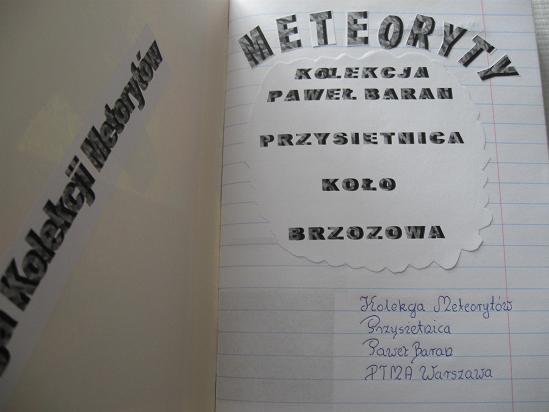 Kolekcji Metorytów
METEORYTY
KOLEKCJA
PAWEŁ BARAN
PRZYSIETNICA
KOŁO
BRZOZOWA
Kolekcja Meteorytów
Przysietnica
Paweł Baran
PTMA Warszawa